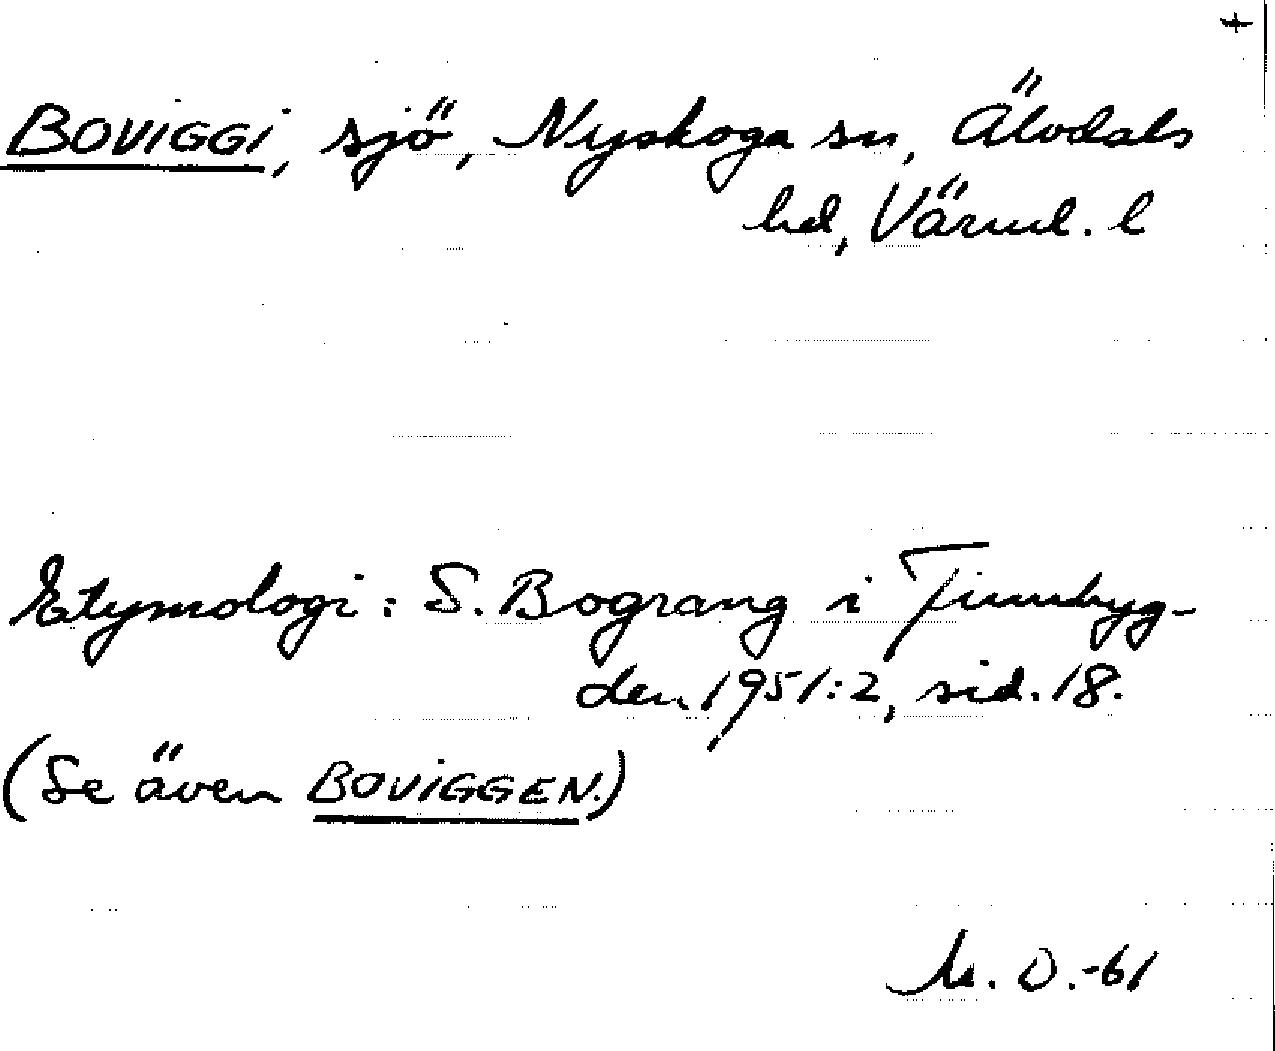 +
BOVIGGI, sjö, Nyskoga sn, Älvdals
hd, Värml. l
Etymologi: S. Bograng i Finnbyg-
den 1951:2, sid. 18.
(Se även BOVIGGEN.)
M. O.-61